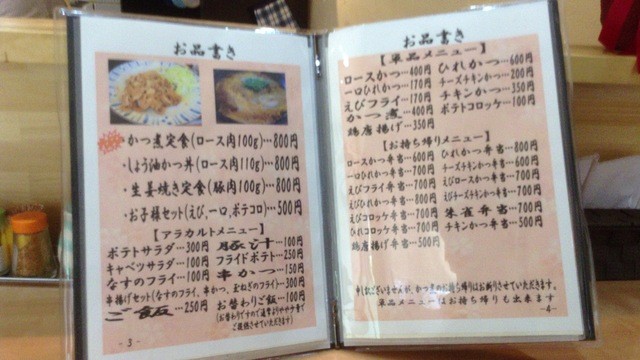 お品書き
かつ煮定食(ロース肉100g)…800円
・しょう油かつ丼(ロース肉110g)…800円
・生姜焼き定食(豚肉100g)…800円
・お子様セット(えび、一口、ポテコロ)…500円
【アラカルトメニュー】
ポテトサラダ…300円 豚汁…100円
キャベツサラダ…100円 フライドポテト…250円
なすのフライ…100円 串かつ…150円
串揚げセット(なすのフライ、串かつ、玉ねぎのフライ)…300円
ご飯…250円 お替わりご飯…100円
ご提供させていただきます)
- 3 -
お品書き
【単品メニュー】
ロースかつ…400円 ひれかつ…600円
一口ひれかつ…170円 チーズチキンかつ…200円
えびフライ…170円 チキンかつ…350円
かつ煮…400円 ポテトコロッケ…100円
鶏唐揚げ…350円
【お持ち帰りメニュー】
ロースかつ弁当…500円 ひれかつ弁当…800円
一口ひれかつ弁当…700円 チーズチキンかつ弁当…600円
えびフライ弁当…700円 えびロースかつ弁当…700円
えびひれかつ弁当…800円 えびチーズチキンかつ弁当…700円
えびコロッケ弁当…700円 朱雀弁当…700円
ひれコロッケ弁当…700円 チキンかつ弁当…500円
鶏唐揚げ弁当…500円
申し訳ございませんが、かつ煮のお持ち帰りはお断りさせていただきます。
単品メニューはお持ち帰りも出来ます
- 4 -